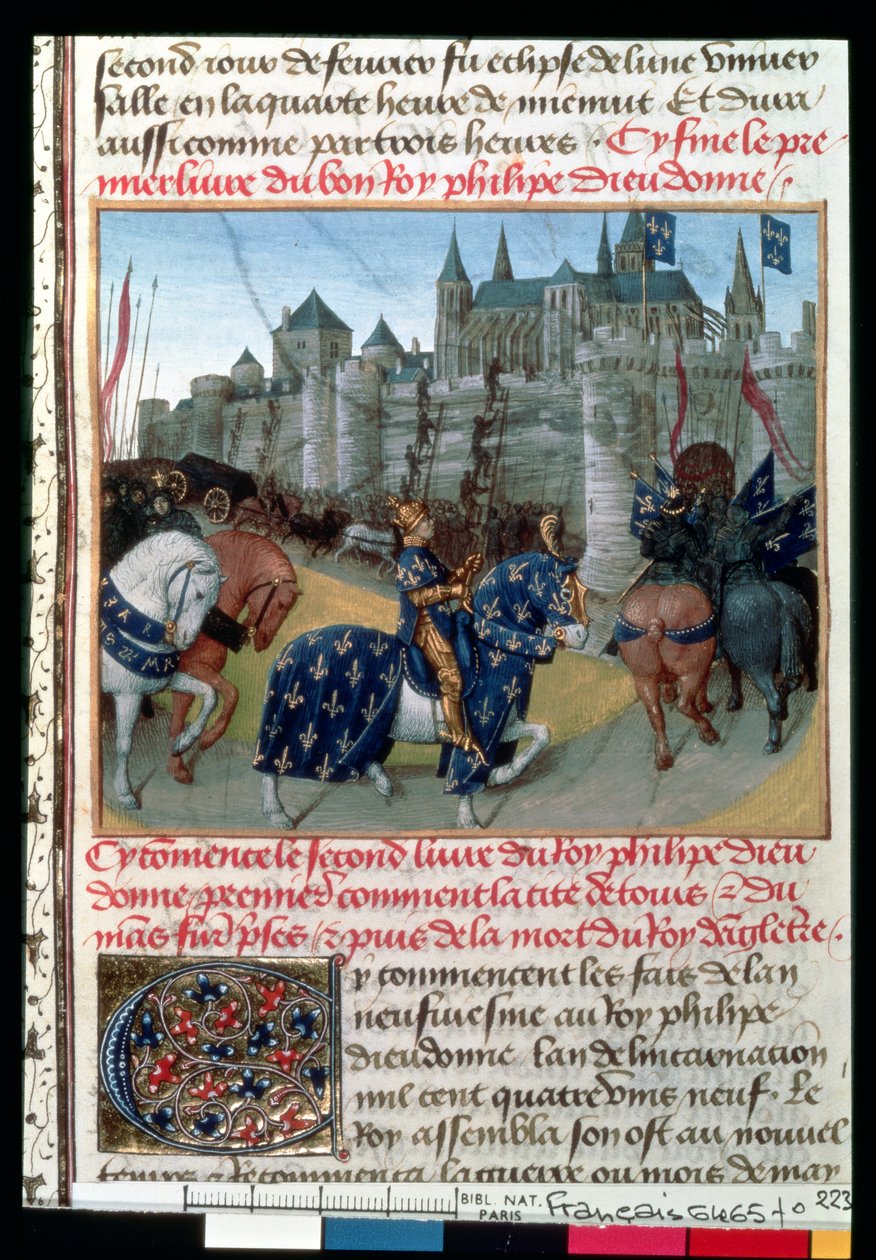 second iour de feurier fu eclipse de lune vniuer
salle en la quarte heure de mienuit Et dura
aussi comme par trois heures. Cy fine le pre
mier liure du bon Roy philipe dieudonne.
Cy cōmence le second liure du Roy philipe dieu
donne, premier cōment la cite de tours et du
mās furēt pses et puis de la mort du Roy dāgletre.
Cy commencent les fais de lan
neufuiesme au Roy philipe
dieudonne lan de lincarnacion
mil cent quatre vins neuf. Le
Roy assembla son ost au nouuel
temps et Recommenca la guerre ou mois de may
BIBL. NAT.
PARIS
Français 6465 fo 223